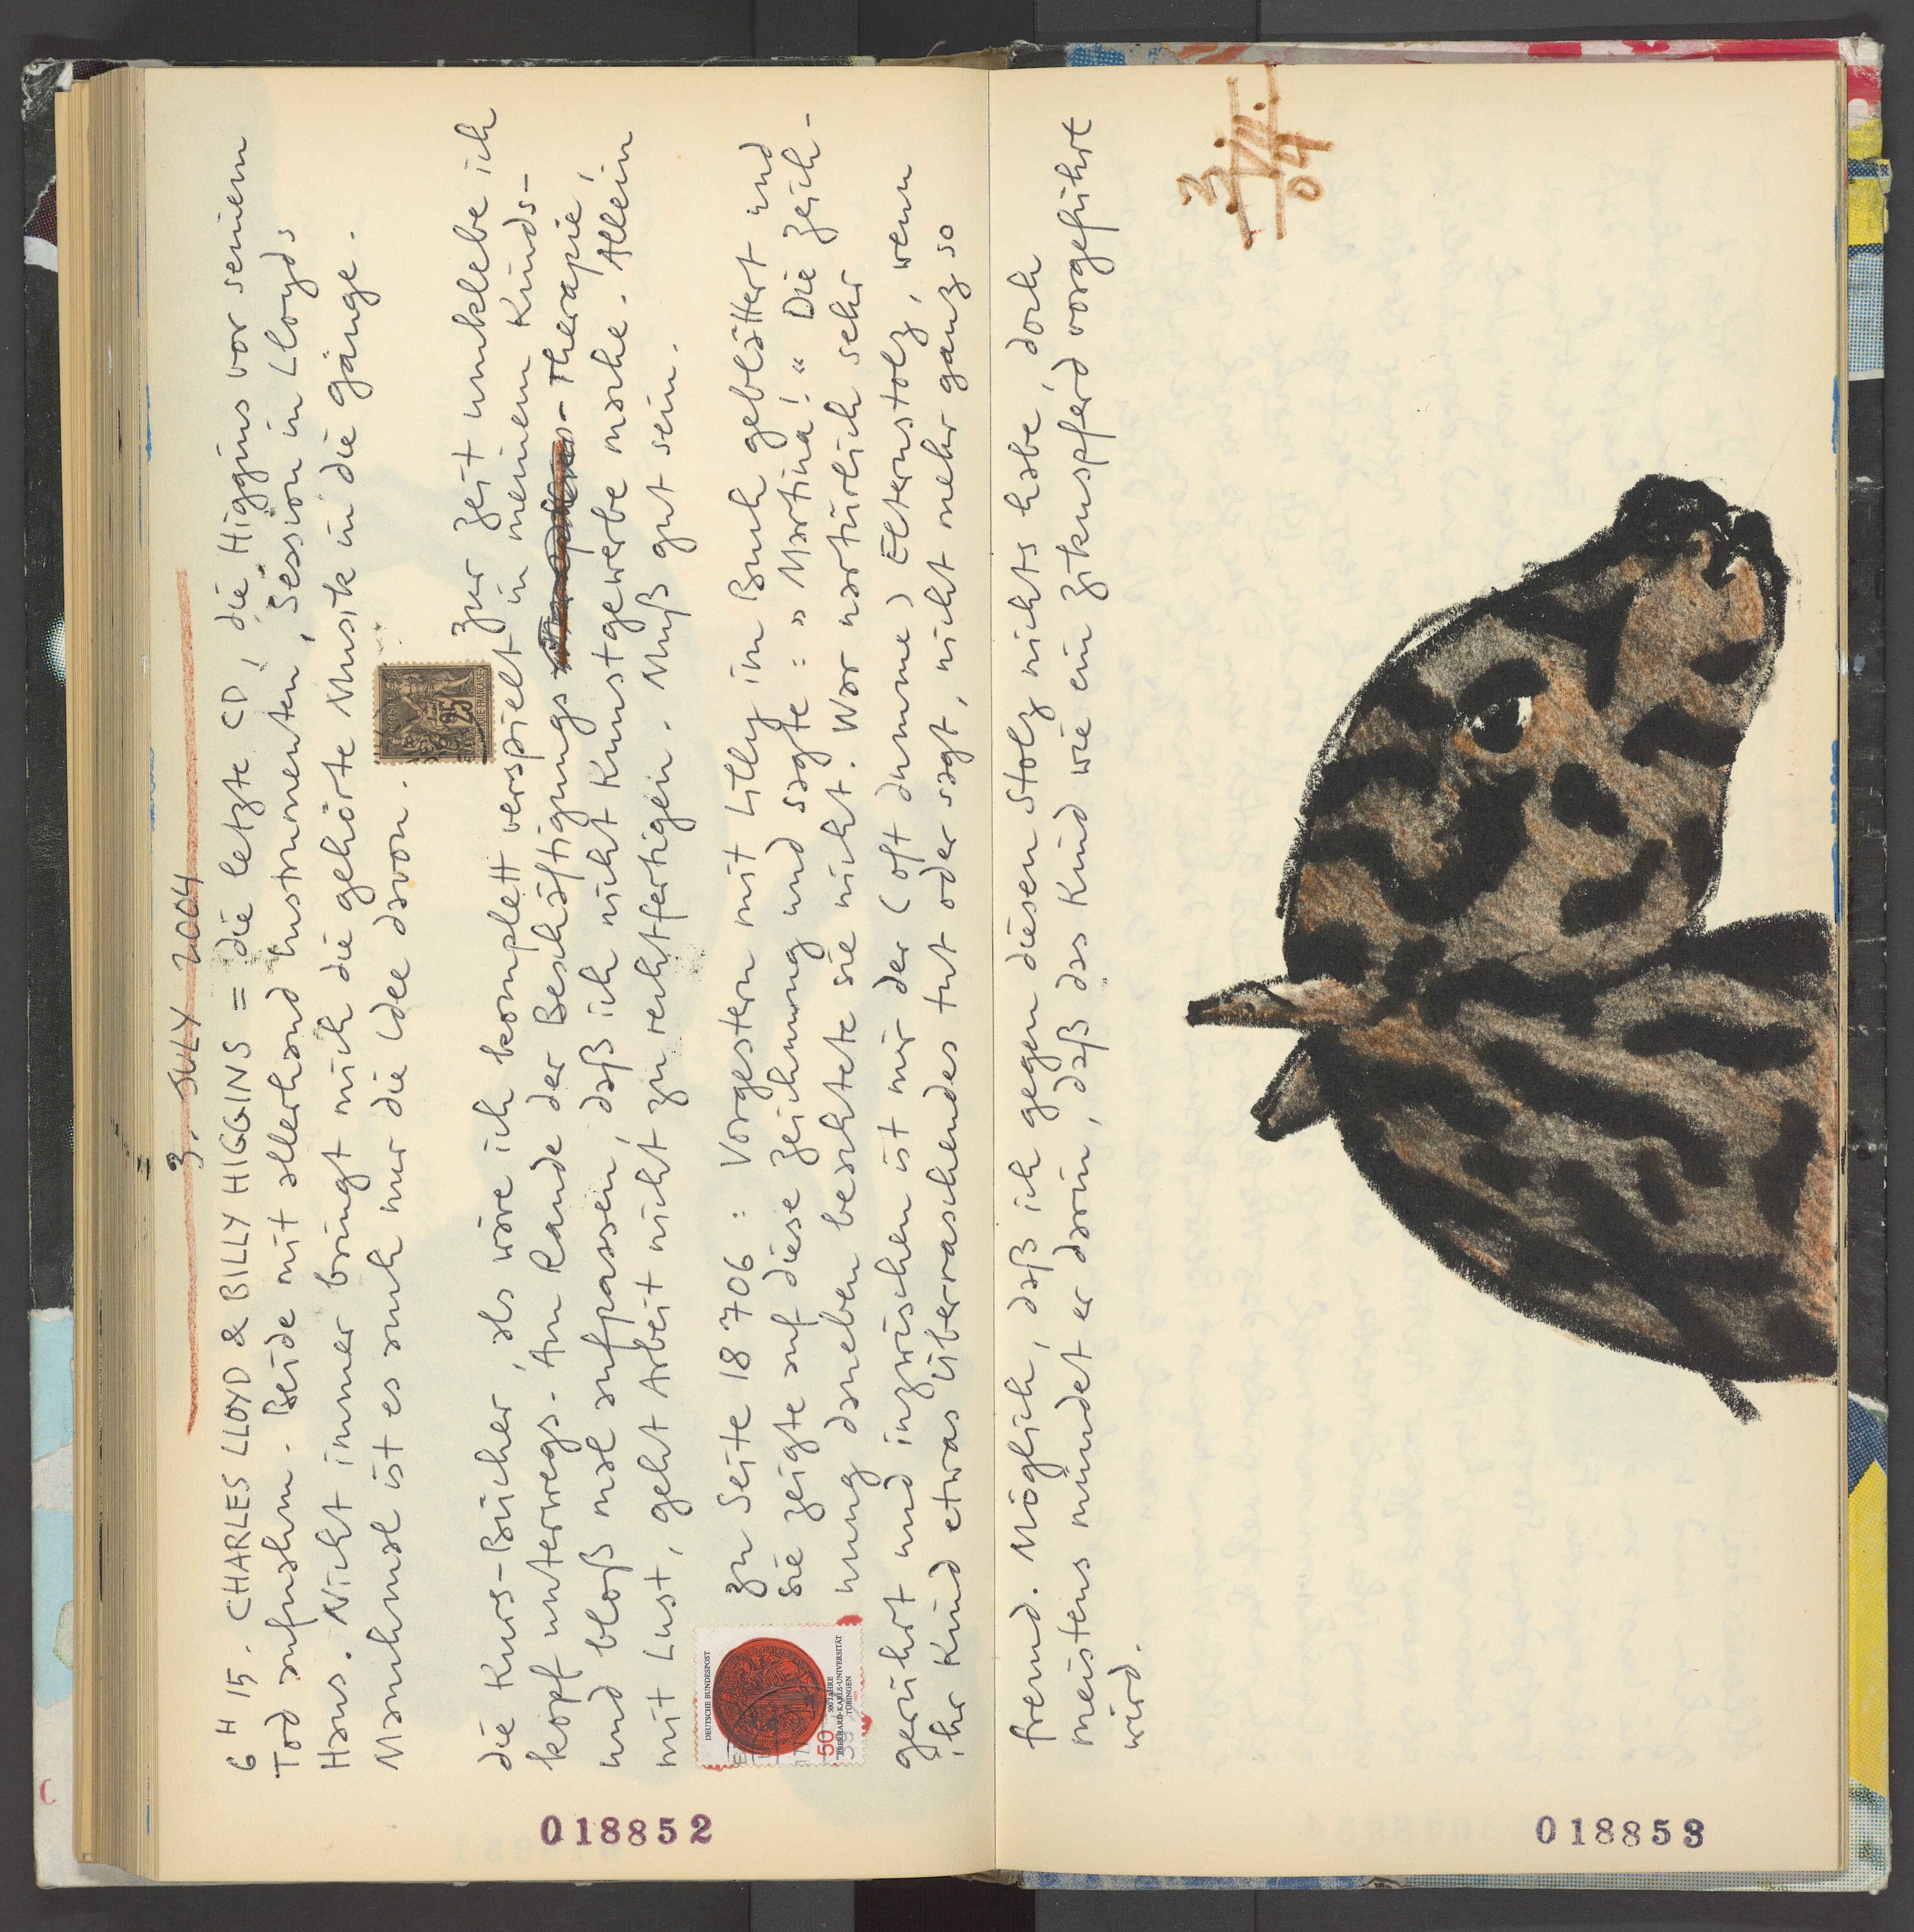 3. JULY 2004
6 H 15. CHARLES LLOYD & BILLY HIGGINS = die letzte CD, die Higgins vor seinem
Tod aufnahm. Beide mit allerhand Instrumenten, Session in Lloyds
Haus. Nicht immer bringt mich die gehörte Musik in die Gänge.
Manchmal ist es auch nur die Idee davon.
25
zur Zeit umklebe ich
die Kurs-Bücher, als wäre ich komplett verspielt in meinem Kinds-
kopf unterwegs. Am Rande der Beschäftigungs-Therapie,
und bloß mal aufpassen, daß ich nicht Kunstgewerbe mache. Allein
mit Lust, geht Arbeit nicht zu rechtfertigen. Muß gut sein.
DEUTSCHE BUNDESPOST
50
500 JAHRE
EBERHARD-KARLS-UNIVERSITÄT
TÜBINGEN
zu Seite 18706: Vorgestern mit Lilly im Buch geblättert und
sie zeigte auf diese Zeichnung und sagte: "Martina!" Die Zeich-
nung daneben beachtete sie nicht. War natürlich sehr
gerührt und inzwischen ist mir der (oft dumme) Elternstolz, wenn
ihr Kind etwas Überraschendes tut oder sagt, nicht mehr ganz so
018852
fremd. Möglich, daß ich gegen diesen Stolz nichts habe, doch
meistens mündet er darin, daß das Kind wie ein Zirkuspferd vorgeführt
wird.
3.
VII.
04
018853